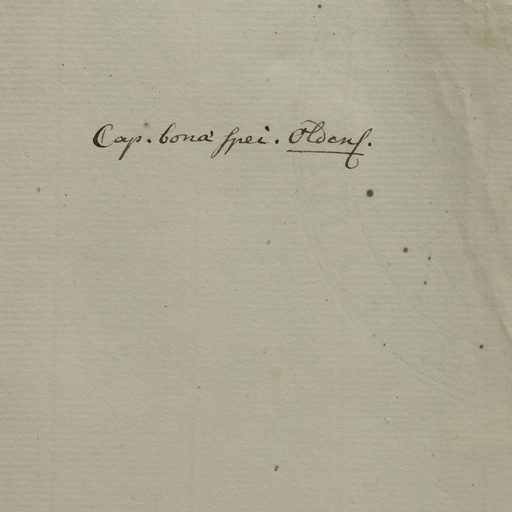 Cap. bonæ spei. Oldenb.